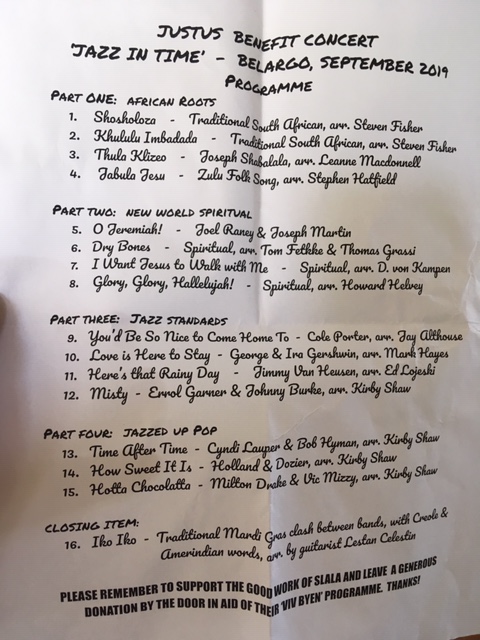 JUSTUS BENEFIT CONCERT
'JAZZ IN TIME' - BELARGO, SEPTEMBER 2019
PROGRAMME
PART ONE: AFRICAN ROOTS
1. Shosholoza - Traditional South African, arr. Steven Fisher
2. Khululu Imbadada - Traditional South African, arr. Steven Fisher
3. Thula Klizeo - Joseph Shabalala, arr. Leanne Macdonnell
4. Jabula Jesu - Zulu Folk Song, arr. Stephen Hatfield
PART TWO: NEW WORLD SPIRITUAL
5. O Jeremiah! - Joel Raney & Joseph Martin
6. Dry Bones - Spiritual, arr. Tom Fetkke & Thomas Grassi
7. I Want Jesus to Walk with Me - Spiritual, arr. D. von Kampen
8. Glory, Glory, Hallelujah! - Spiritual, arr. Howard Helvey
PART THREE: JAZZ STANDARDS
9. You'd Be So Nice to Come Home To - Cole Porter, arr. Jay Althouse
10. Love is Here to Stay - George & Ira Gershwin, arr. Mark Hayes
11. Here's that Rainy Day - Jimmy Van Heusen, arr. Ed Lojeski
12. Misty - Errol Garner & Johnny Burke, arr. Kirby Shaw
PART FOUR: JAZZED UP POP
13. Time After Time - Cyndi Lauper & Bob Hyman, arr. Kirby Shaw
14. How Sweet It Is - Holland & Dozier, arr. Kirby Shaw
15. Hotta Chocolatta - Milton Drake & Vic Mizzy, arr. Kirby Shaw
CLOSING ITEM:
16. Iko Iko - Traditional Mardi Gras clash between bands, with Creole &
Amerindian words, arr. by guitarist Lestan Celestin
PLEASE REMEMBER TO SUPPORT THE GOOD WORK OF SLALA AND LEAVE A GENEROUS
DONATION BY THE DOOR IN AID OF THEIR 'VIV BYEN' PROGRAMME. THANKS!